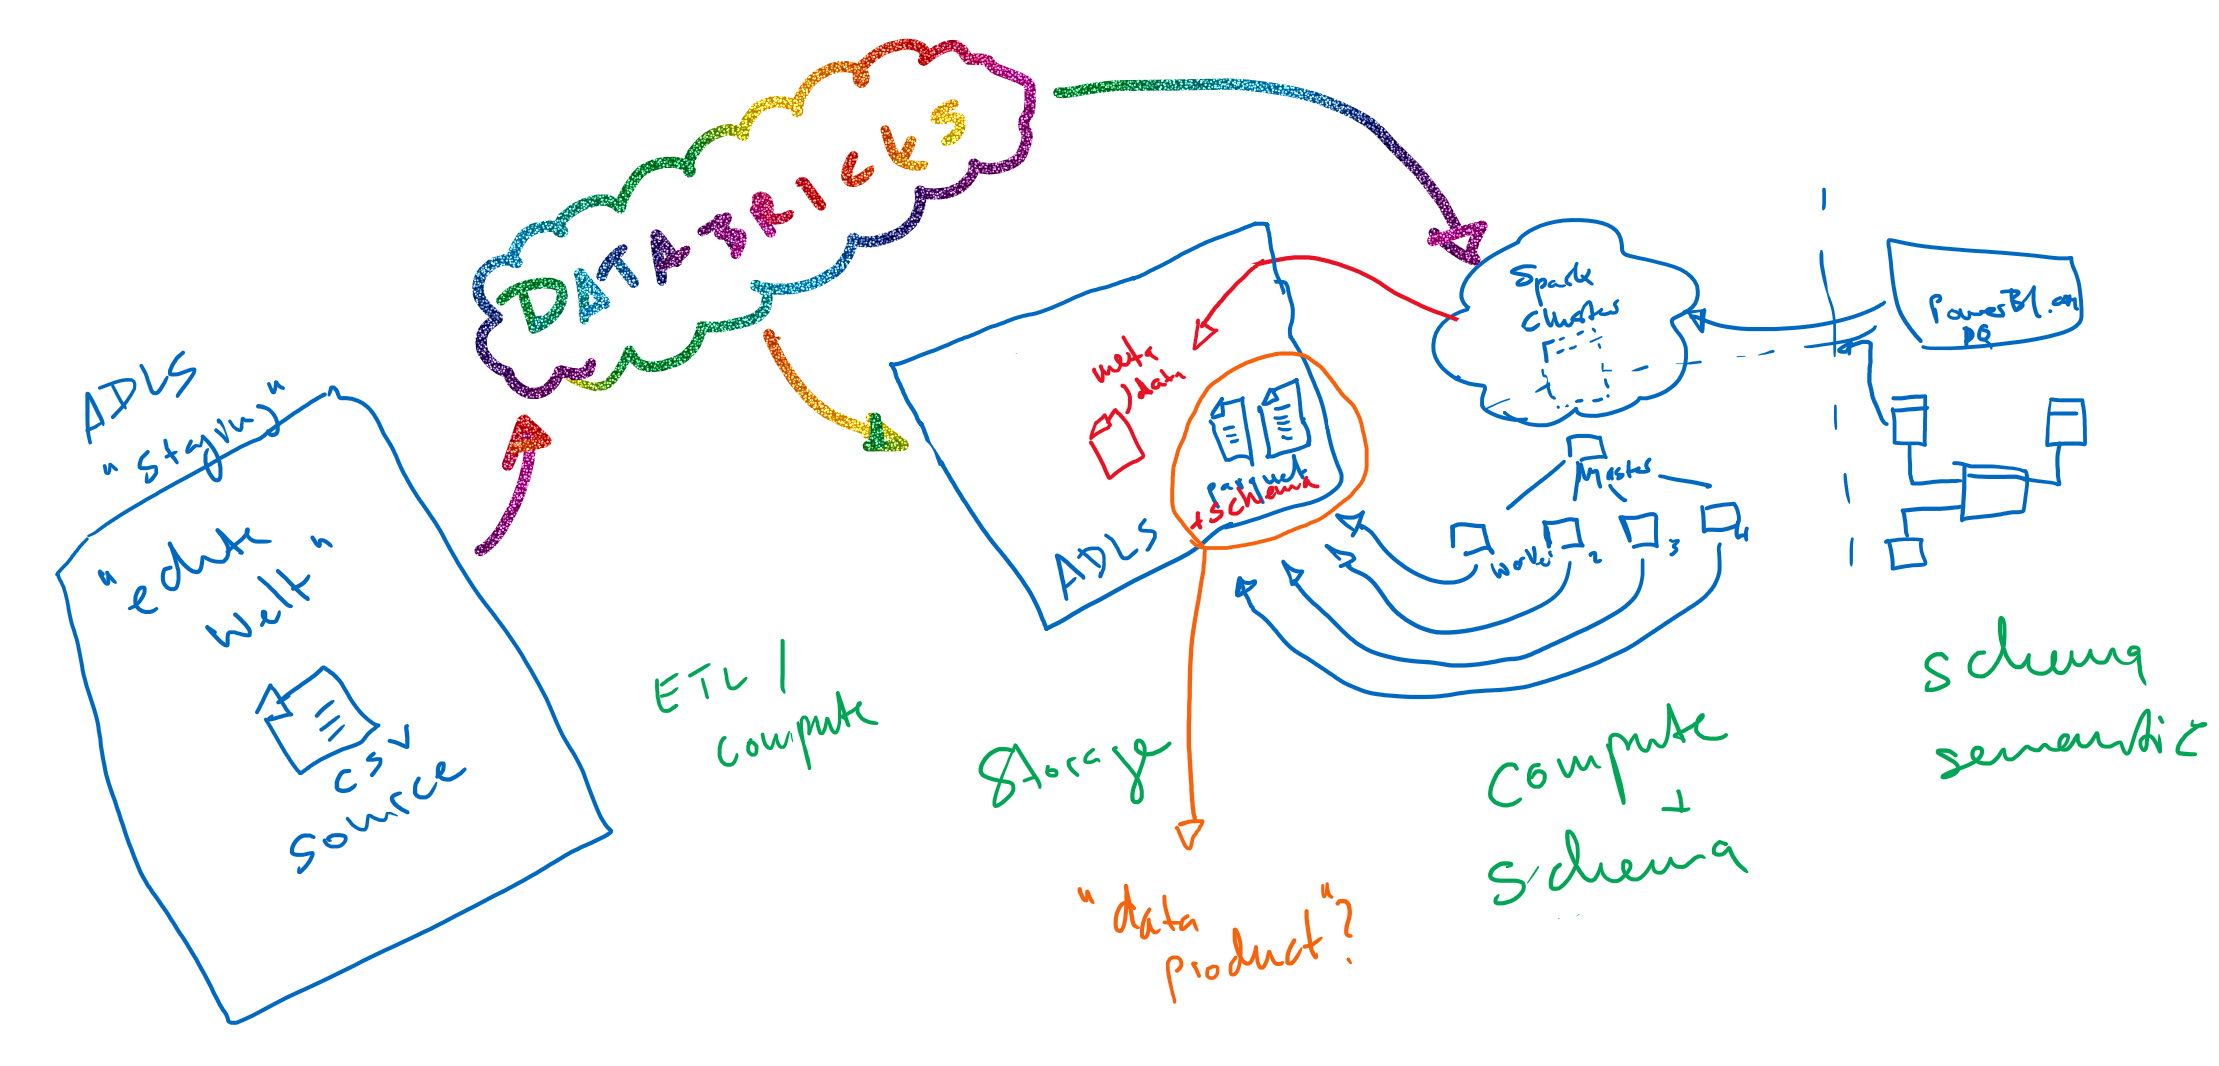 ADLS
"staging"
"echte
Welt"
csv
source
DATABRICKS
ETL /
compute
meta
data
parquet
+ schema
ADLS
Storage
"data
product"?
Spark
Cluster
Master
Worker 2 3 4
Compute
+
Schema
PowerBI.com
DQ
schema
semantic